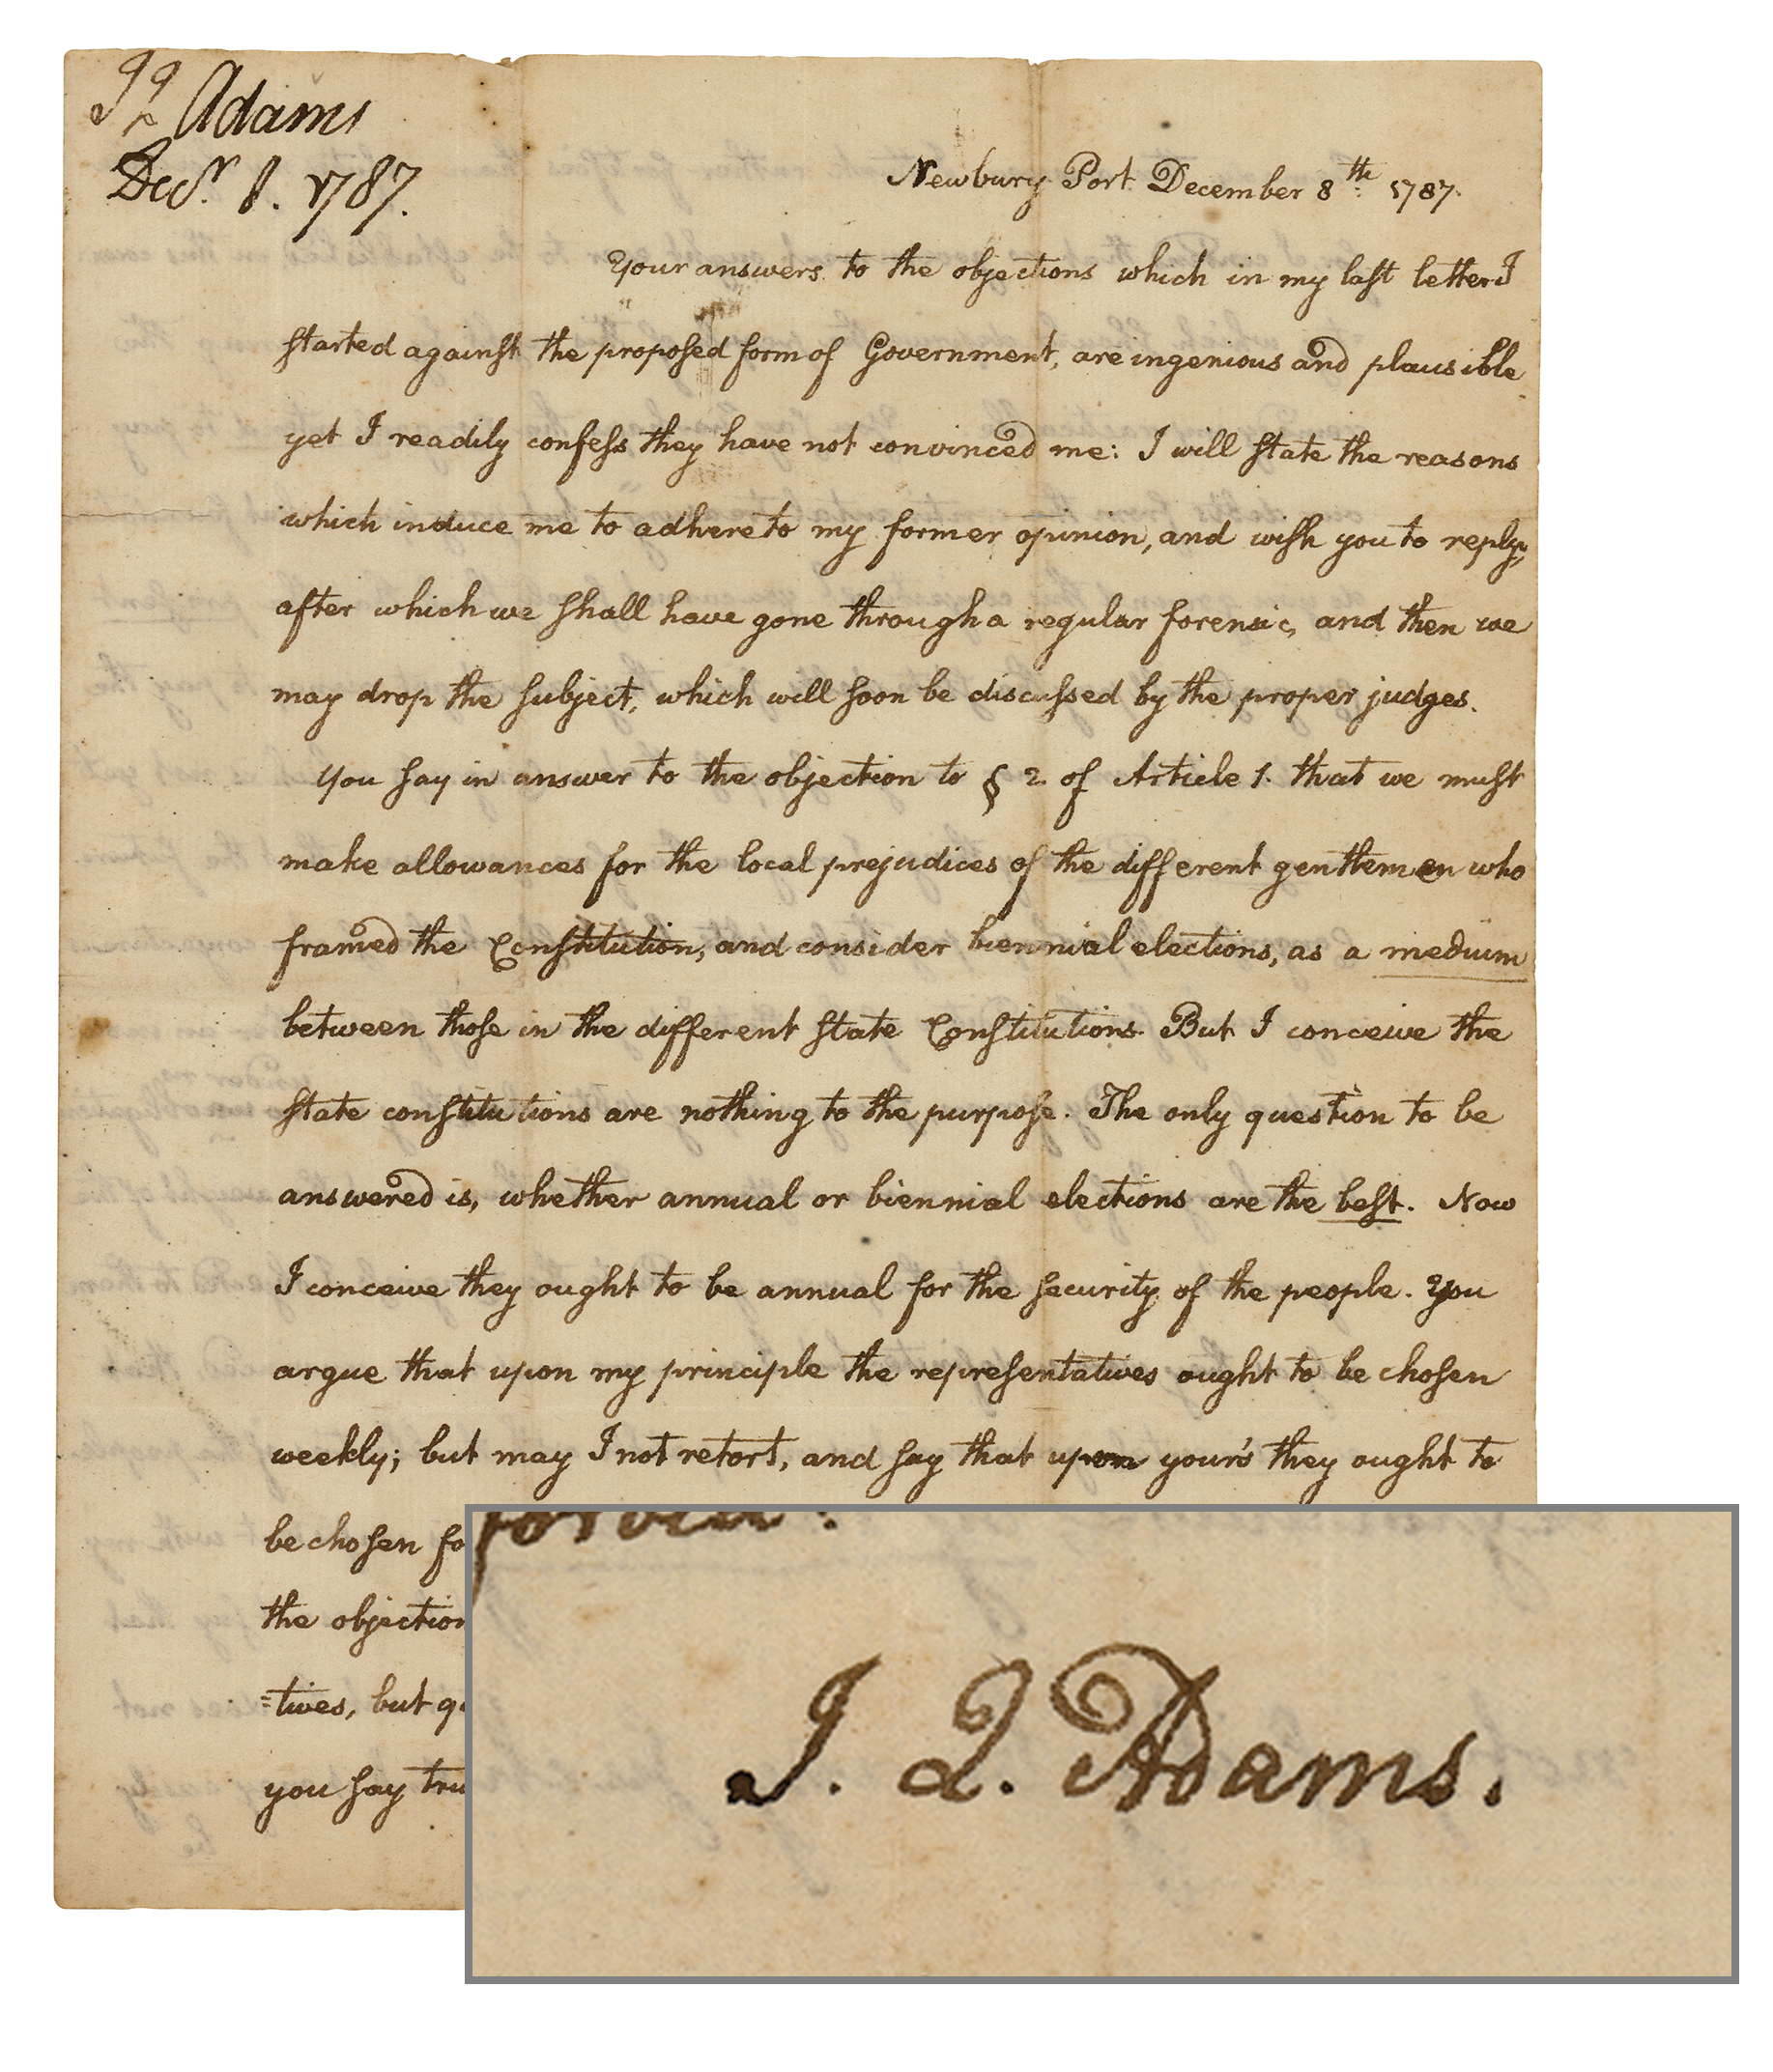 JQ Adams
Decr. 8. 1787.
Newbury Port December 8th. 1787.
Your answers to the objections which in my laſt letter I
ſtarted againſt the propoſed form of Government, are ingenious and plausible
yet I readily confeſs they have not convinced me: I will ſtate the reasons
which induce me to adhere to my former opinion, and wiſh you to reply,
after which we ſhall have gone through a regular forensic, and then we
may drop the ſubject, which will ſoon be diſcuſsed by the proper judges.
You ſay in answer to the objection to § 2 of Article 1. that we muſt
make allowances for the local prejudices of the different gentlemen who
framed the Conſtitution, and consider biennial elections, as a medium
between thoſe in the different ſtate Conſtitutions. But I conceive the
ſtate conſtitutions are nothing to the purpoſe. The only question to be
answered is, whether annual or biennial elections are the beſt. Now
I conceive they ought to be annual for the ſecurity of the people. You
argue that upon my principle the repreſentatives ought to be choſen
weekly; but may I not retort, and ſay that upon your's they ought to
be choſen fo
the objection
=tives, but qu
you ſay tru
J. Q. Adams.